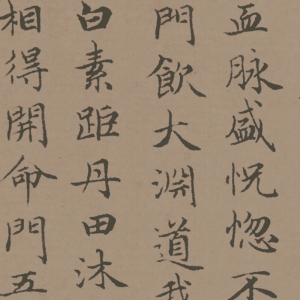 血脉盛怳惚不
門飲大淵道我
白素距丹田沐
相得開命門五